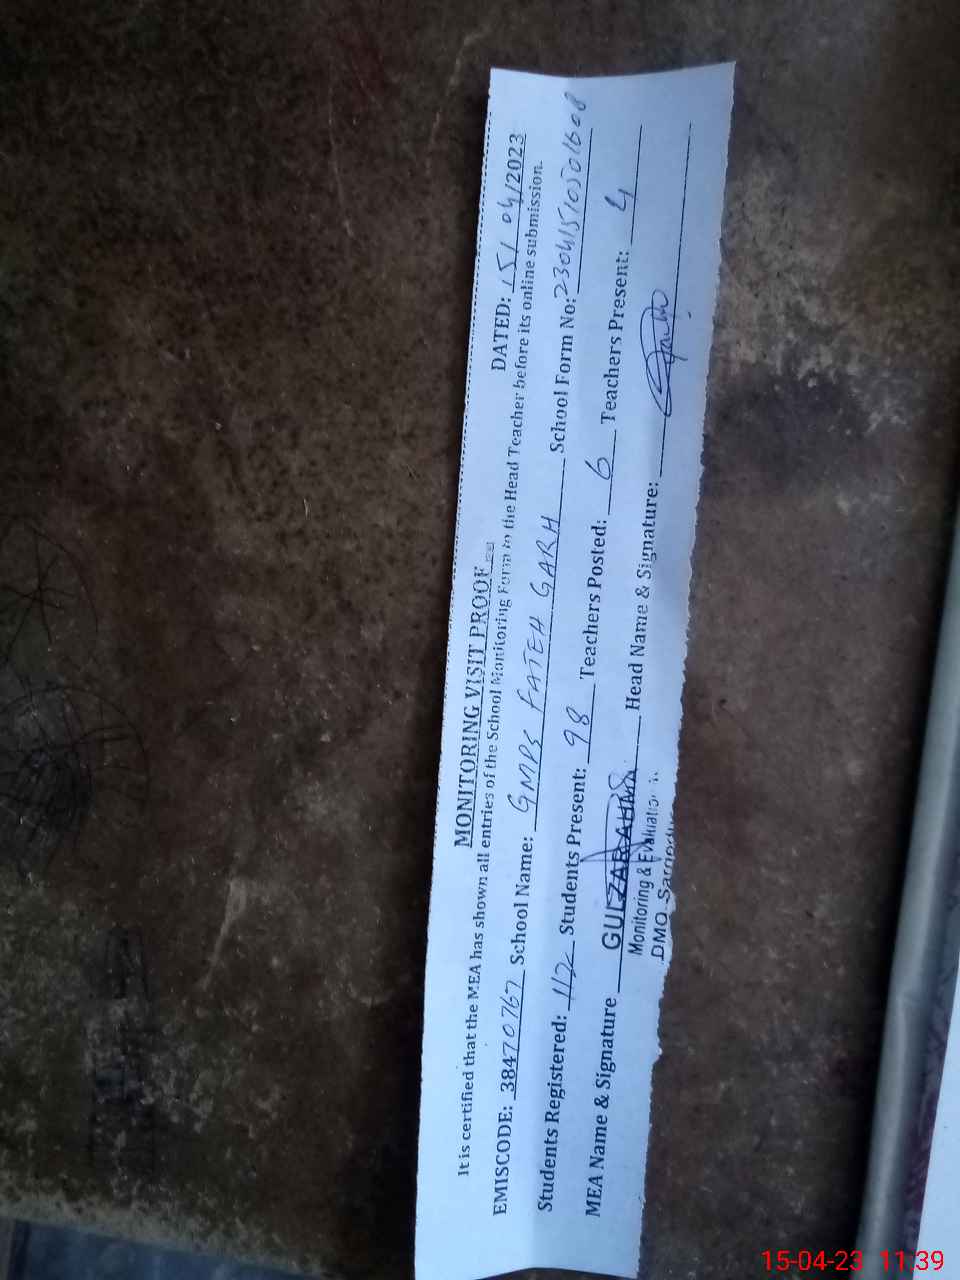 MONITORING VISIT PROOF
DATED: 15/04/2023
It is certified that the MEA has shown all entries of the School Monitoring Form to the Head Teacher before its online submission.
EMISCODE: 38470767 School Name: GMPS FATEH GARH School Form No: 23041510501608
Students Registered: 112 Students Present: 98 Teachers Posted: 6 Teachers Present: 4
MEA Name & Signature GULZAR AHMA Head Name & Signature:
Monitoring & Evaluation
DMO Sargodha
15-04-23 11:39